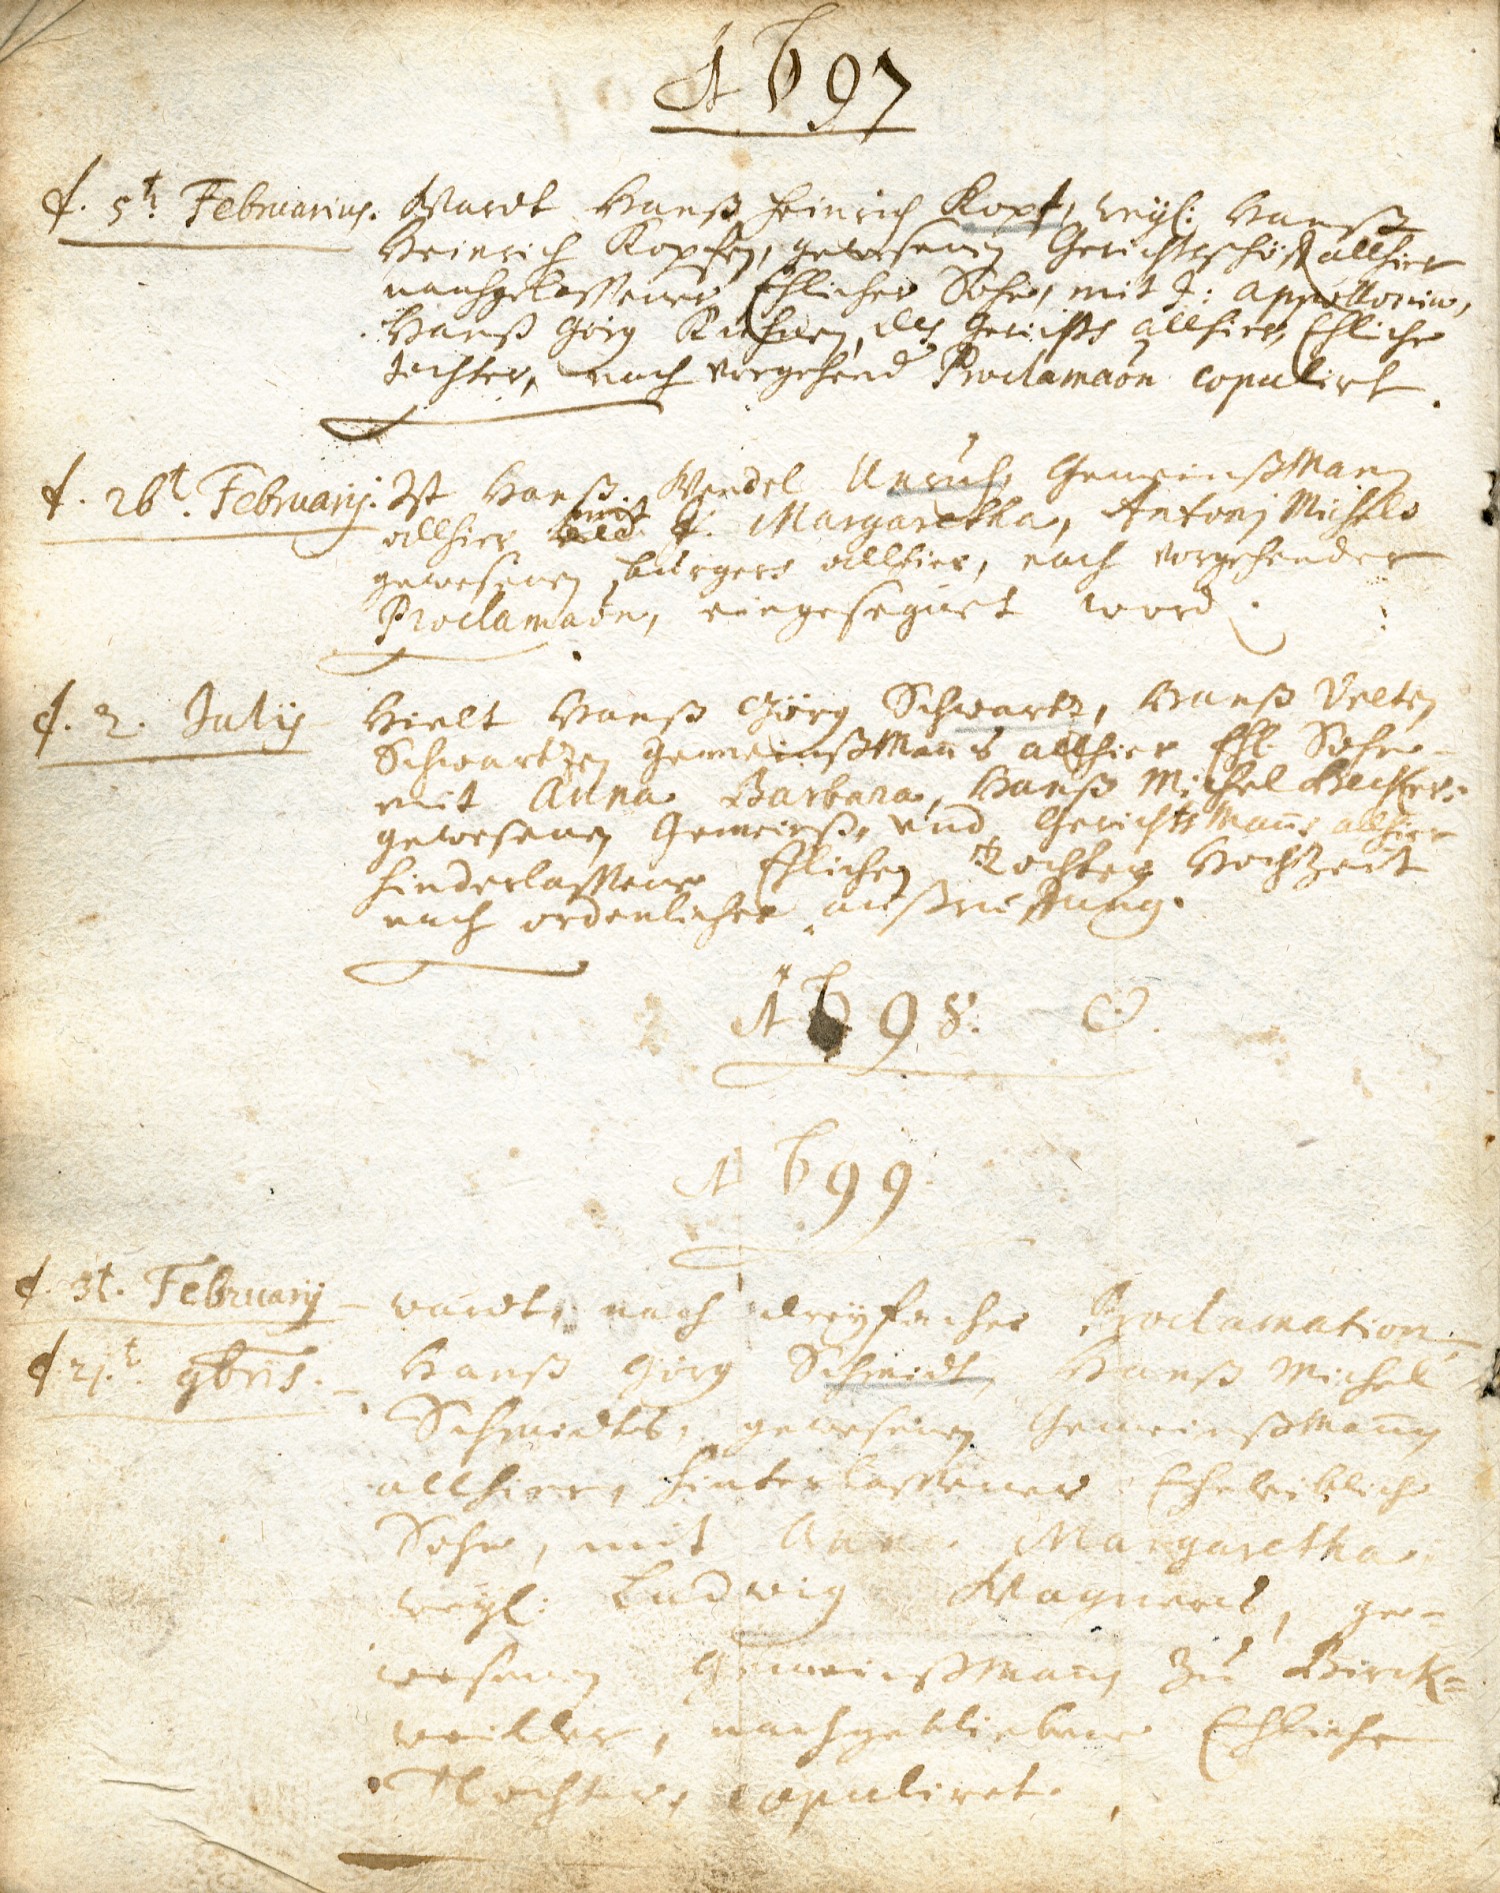 1697
d. 5t. Februarius. Wardt Hanß Heinrich Kopf, weyl: Hanß
Heinrich Kopfen, gewesenen Gerichtsschöff allhier
nachgelassener Ehlicher Sohn, mit J: Appollonia,
Hanß Görg Kuhnen, des Gerichts allhier, Ehliche
Tochter, nach vorgehend Proclamaon copulirt.
d. 26t. Februarij. Ist Hanß Wendel Unruh, Gemeinßman
allhier mit J. Margaretha, Antonj Michels
gewesenen burgers allhier, nach vorgehender
Proclamaon, eingesegnet word.
d. 2. Julij Hielt Hanß Görg Schwartz, Hanß Velten
Schwartzen Gemeinßmans allhier Ehl. Sohn
mit Anna Barbara, Hanß Michel Beckers
gewesenen Gemeinß, und Gerichtsmans allhier
hinderlassene Ehlichen Tochter Hochzeit
nach ordenlicher außruffung.
1698. O.
1699
d. 3t. Februarij wardt, nach dreyfacher Proclamation,
d. 21.t 9bris. Hanß Görg Schmidt, Hanß Michel
Schmidts, gewesenen Gemeinßmann
allhier, hinterlassener Eheleiblicher
Sohn, mit Anna Margaretha,
weyl: Ludwig Wagners, ge-
wesenen Gemeinßmans zu Birck=
weiller, nachgebliebene Ehliche
Tochter, copuliret.